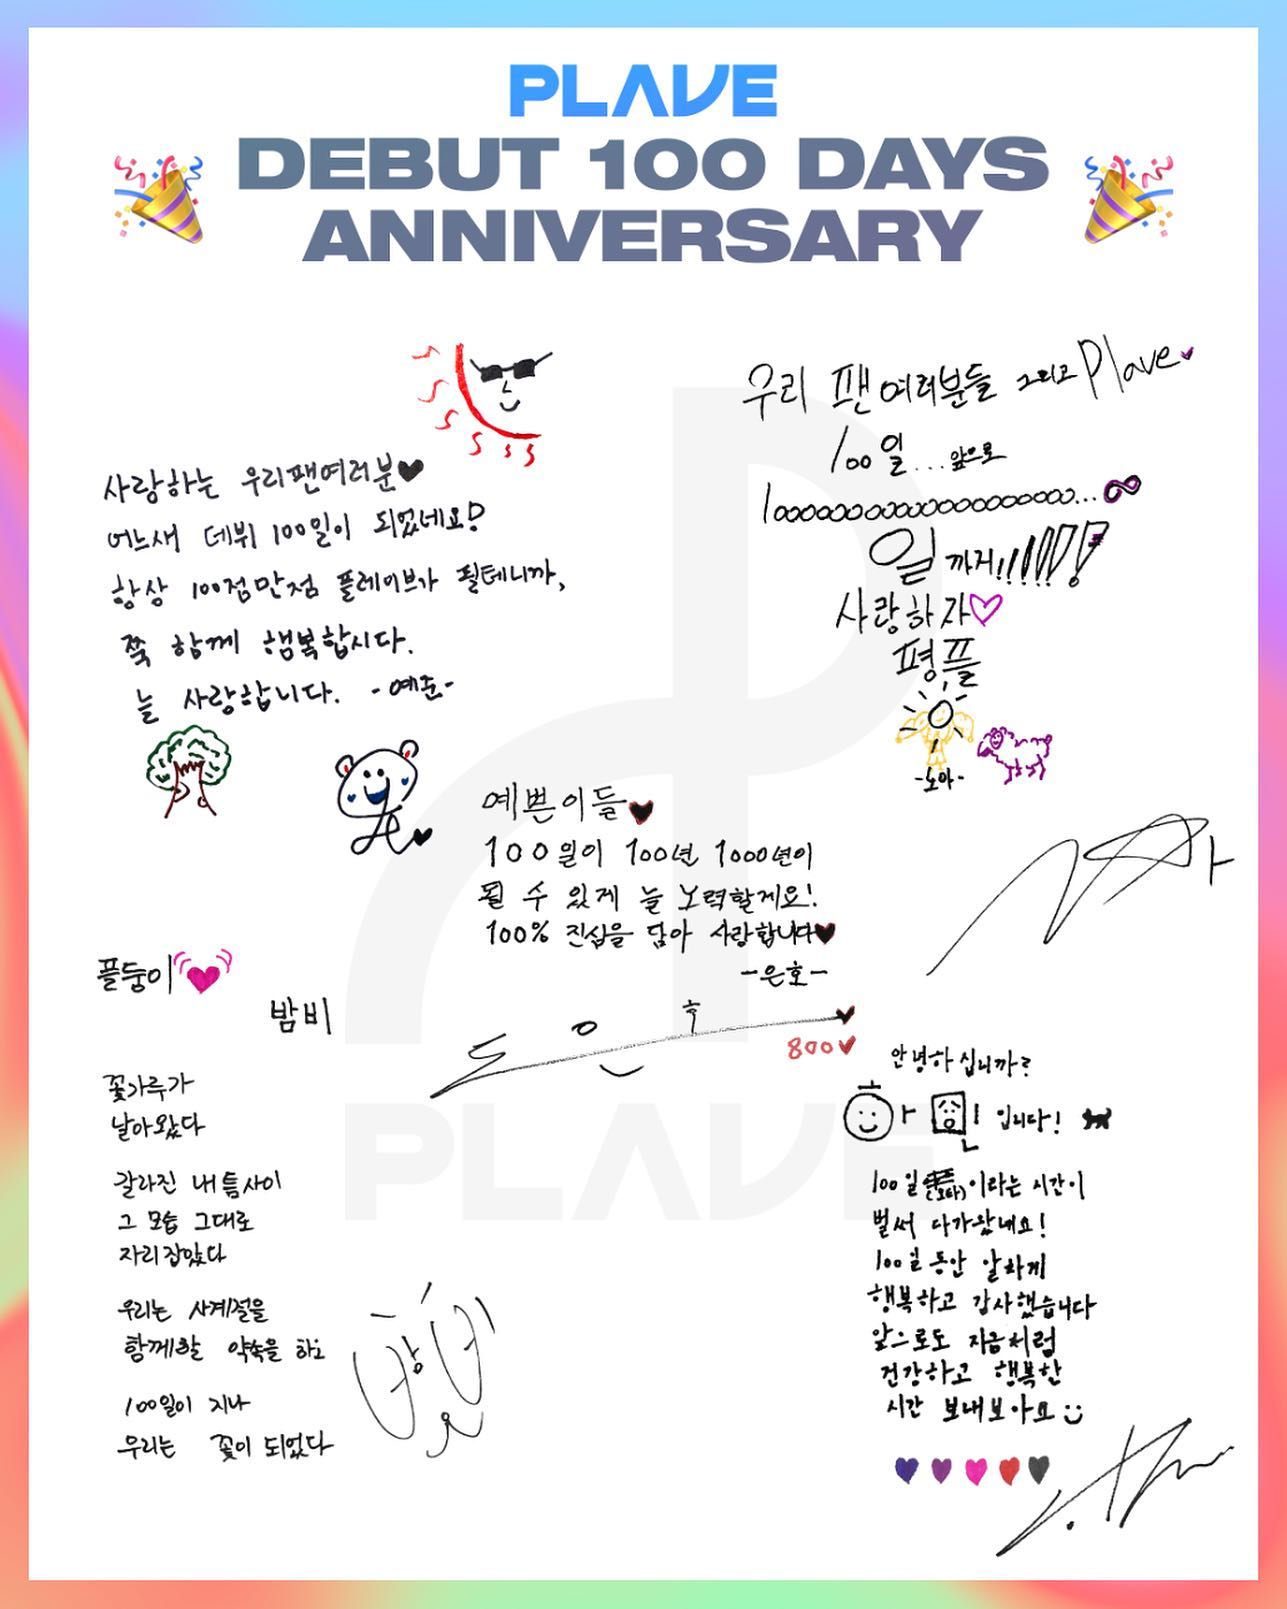 PLAVE
DEBUT 100 DAYS
ANNIVERSARY
사랑하는 우리팬여러분♥
어느새 데뷔 100일이 되었네요!
항상 100점만점 플레이브가 될테니까,
쭉 함께 행복합시다.
늘 사랑합니다. -예준-
우리 팬여러분들 그리고 Plave
100일...앞으로
1000000000000000000...∞
일까지!!!!!!!
사랑하자♡
평.플
-노아-
예쁜이들♥
100일이 100년 1000년이
될 수 있게 늘 노력할게요!
100% 진심을 담아 사랑합니다♥
-은호-
도은호
800♥
플둥이
밤비
꽃가루가
날아왔다
갈라진 내 틈사이
그 모습 그대로
자리잡았다
우리는 사계절을
함께할 약속을 하고
100일이 지나
우리는 꽃이 되었다
안녕하십니까?
하민 입니다!
100일 (오타)이라는 시간이
벌써 다가왔네요!
100일 동안 알차게
행복하고 감사했습니다
앞으로도 지금처럼
건강하고 행복한
시간 보내보아요
PLAVE